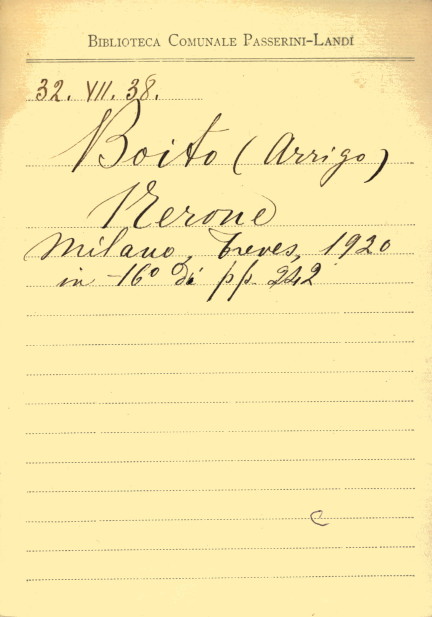 BIBLIOTECA COMUNALE PASSERINI-LANDI
32. VII. 38.
Boito (Arrigo)
Nerone
Milano, Treves, 1920
in -16° di pp. 242
C